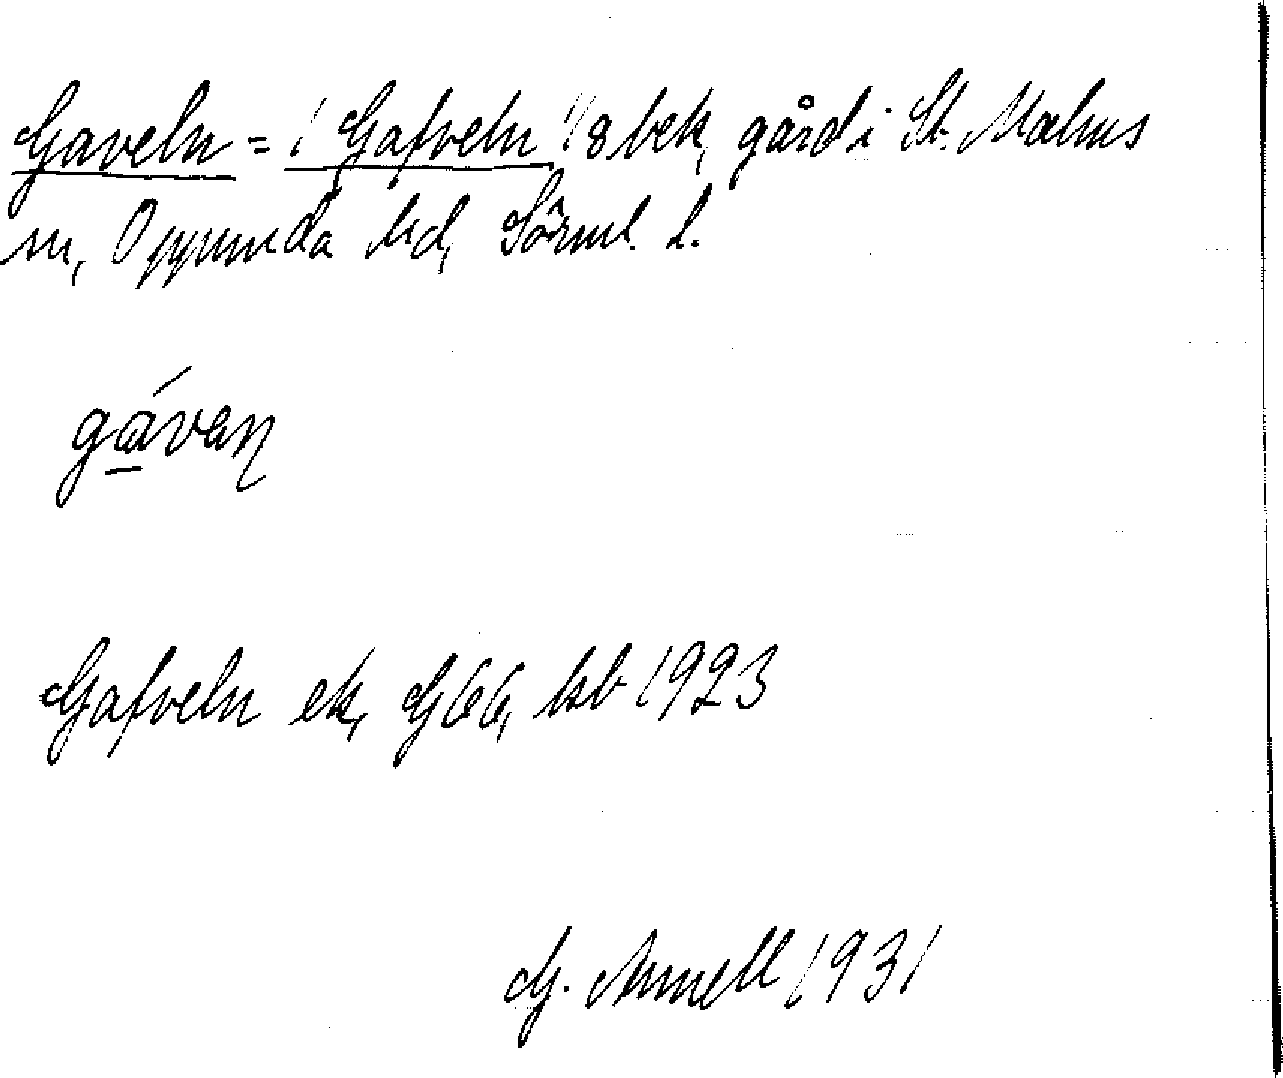 Gaveln = 1 Gafveln 1/8 bek, gård i St. Malms
sn, Oppunda hd, Sörml. l.
gávaṇ
Gafveln ek, G66, kb 1923
G. Annell 1931